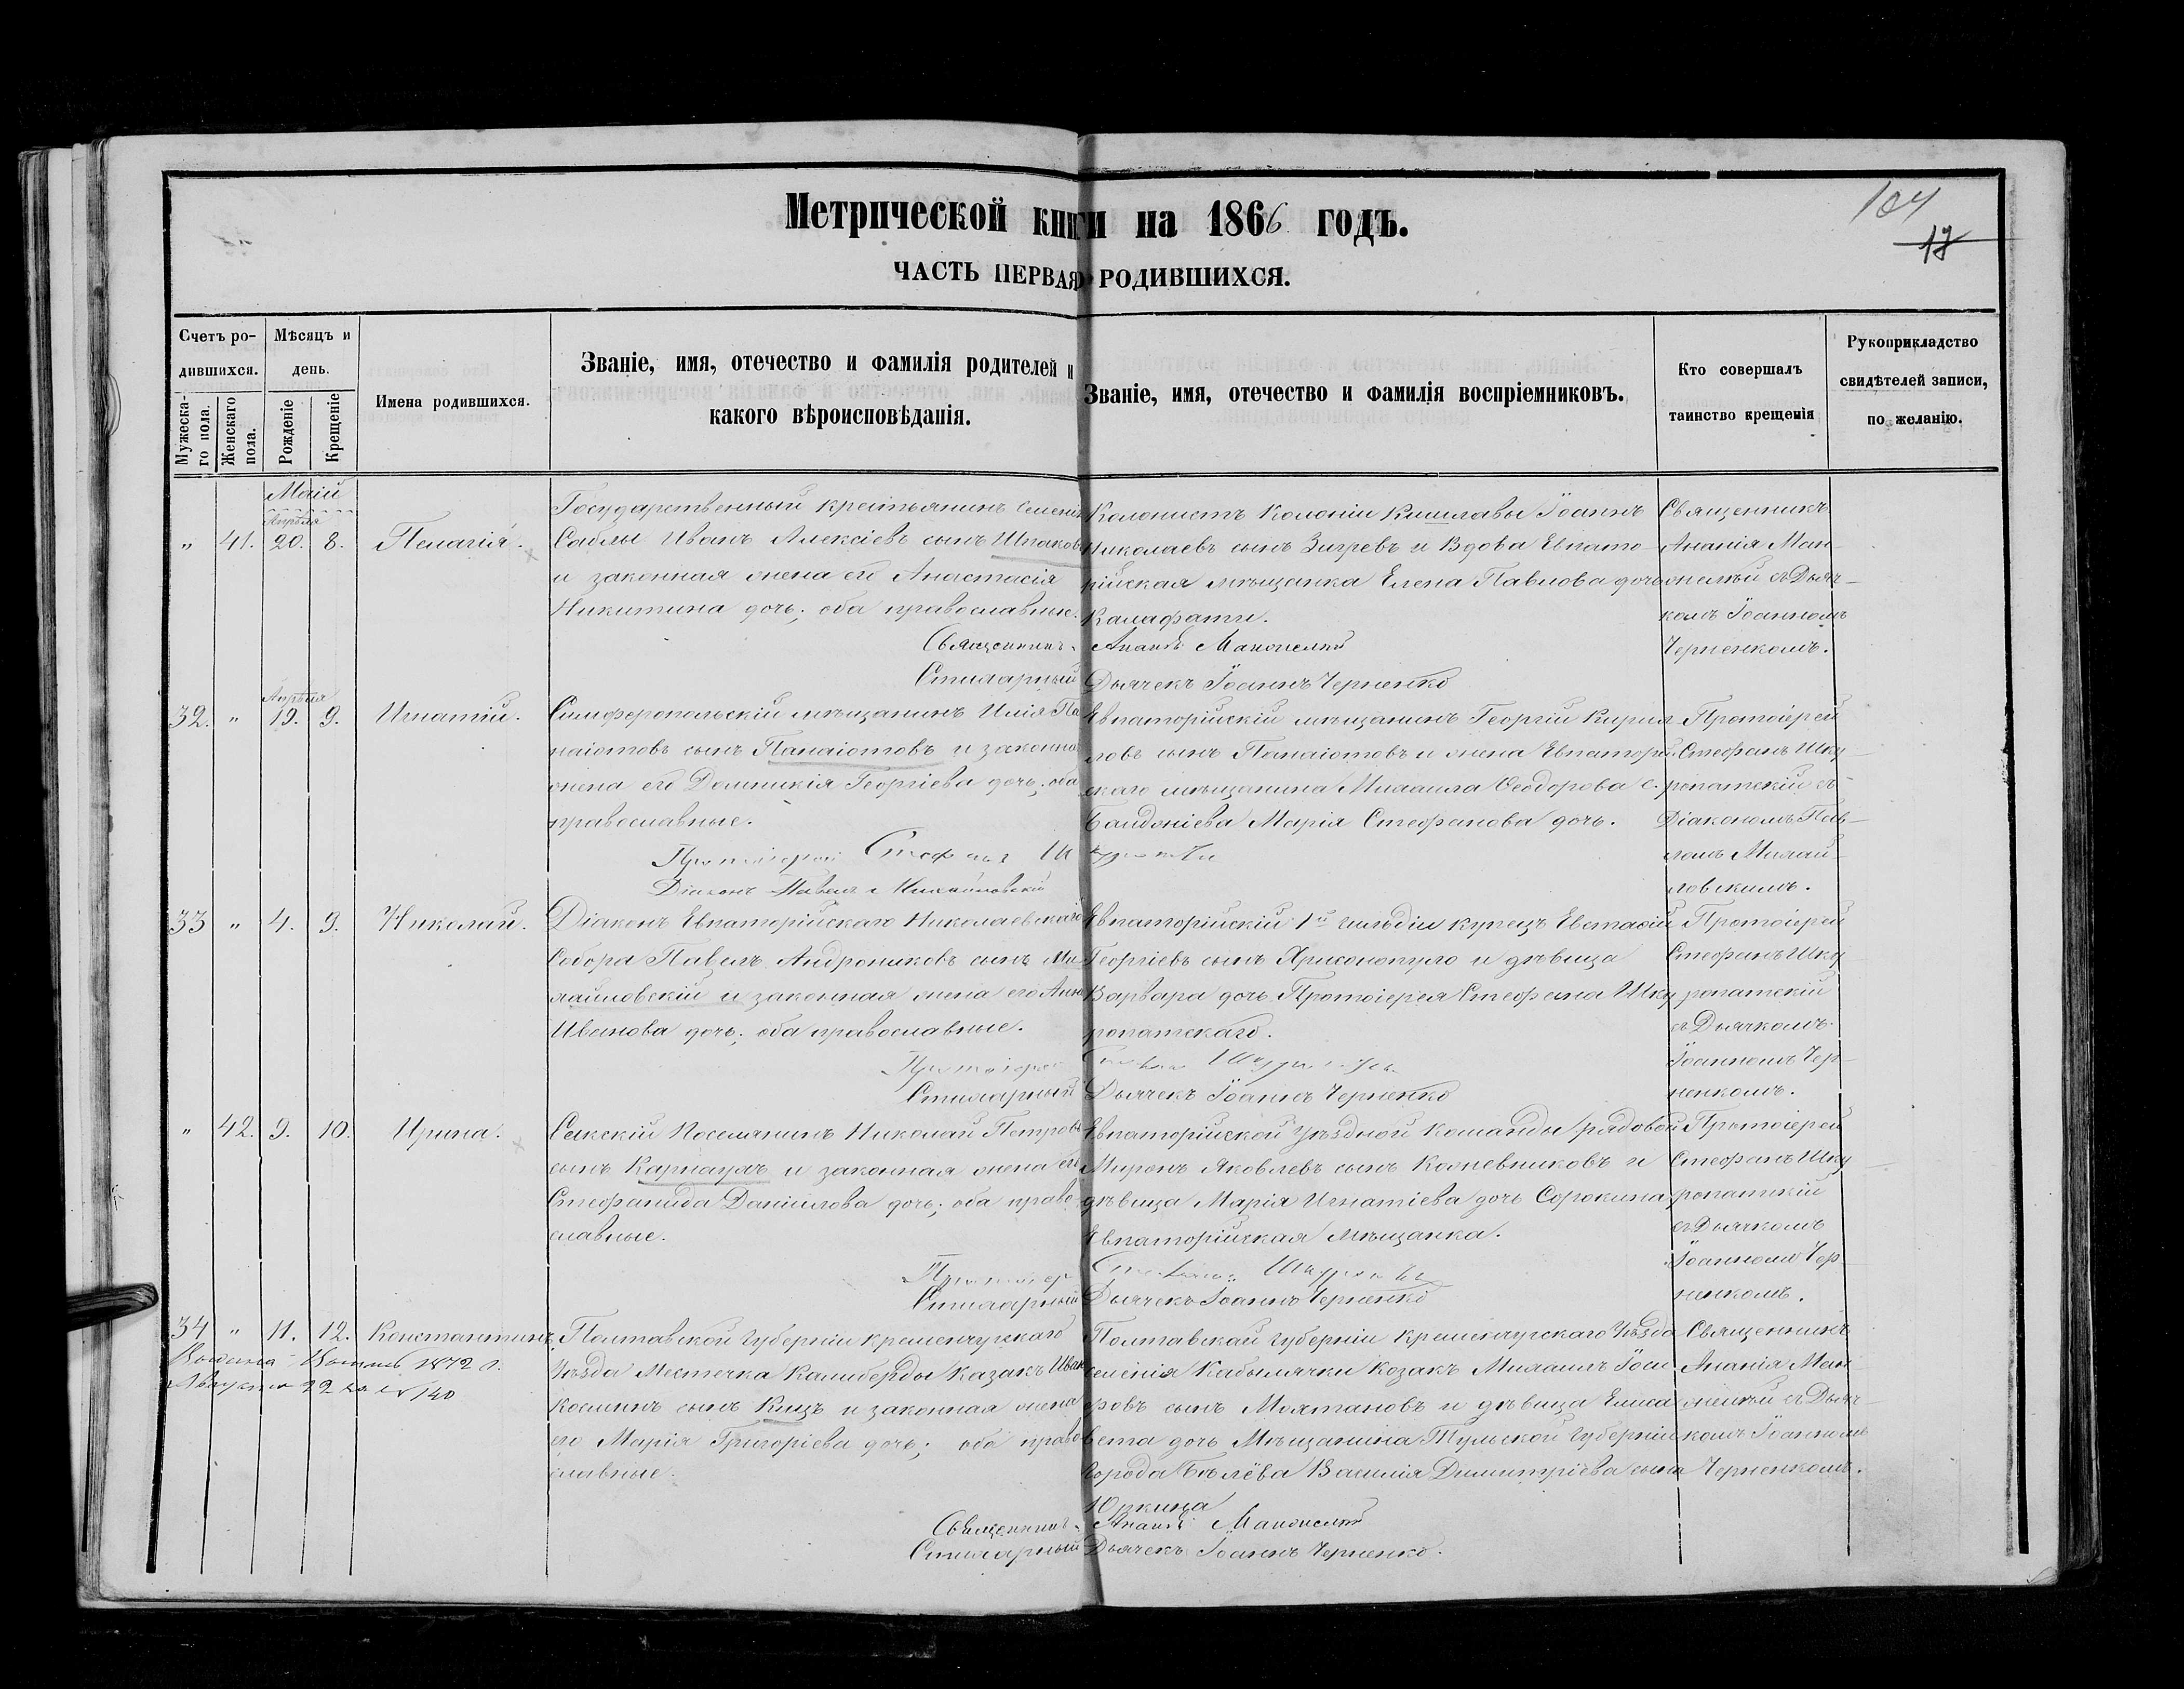 104
17
Метрической книги на 1866 годъ.
ЧАСТЬ ПЕРВАЯ РОДИВШИХСЯ.
Счетъ родившихся.
Мужескаго пола.
Женскаго пола.
Мѣсяцъ и день.
Рожденіе
Крещеніе
Имена родившихся.
Званіе, имя, отечество и фамилія родителей и
какого вѣроисповѣданія.
Званіе, имя, отечество и фамилія воспріемниковъ.
Кто совершалъ
таинство крещенія
Рукоприкладство
свидѣтелей записи,
по желанію.
Маій
Апрѣля
" 41. 20. 8. Пелагія.
Государственный крестьянинъ селенія
Саблы Иванъ Алексіевъ сынъ Шпаковъ
и законная жена его Анастасія
Никитина дочь; оба православные.
Колонистъ Колоніи Кишлавы Іоаннъ
Николаевъ сынъ Зигревъ и Вдова Евпато-
рійская мѣщанка Елена Павлова дочь
Калафати.
Священникъ
Ананія Ман-
желѣй съ Дьяч-
комъ Іоанномъ
Черненкомъ.
Священникъ
Стихарный Дьячекъ Іоаннъ Черненко
Апрѣля
32. " 19. 9. Игнатій.
Симферопольскій мѣщанинъ Илія Па-
наіотовъ сынъ Панаіотовъ и законная
жена его Домникія Георгіева дочь; оба
православные.
Евпаторійскій мѣщанинъ Георгій Кирил-
ловъ сынъ Панаіотовъ и жена Евпаторій-
скаго мѣщанина Михаила Ѳеодорова с.
Марія Стефанова дочь.
Протоіерей
Стефанъ Шку-
ропатскій съ
Діакономъ Пав-
ломъ Михай-
ловскимъ.
Протоіерей Стефанъ
Діаконъ Павелъ Михайловскій
33 " 4. 9. Николай.
Діаконъ Евпаторійскаго Николаевскаго
Собора Павелъ Андрониковъ сынъ Ми-
хайловскій и законная жена его Анна
Иванова дочь; оба православные.
Евпаторійскій 1й гильдіи купецъ Евстафій
Георгіевъ сынъ Хрисопуло и дѣвица
Варвара дочь Протоіерея Стефана Шку-
ропатскаго.
Протоіерей
Стефанъ Шку-
ропатскій
съ Дьячкомъ
Іоанномъ Чер-
ненкомъ.
Протоіерей
Стихарный Дьячекъ Іоаннъ Черненко
" 42. 9. 10. Ирина.
Поселянинъ Николай Петровъ
сынъ Карнаухъ и законная жена его
Стефанида Даніилова дочь; оба право-
славные.
Евпаторійской Уѣздной Команды рядовой
Миронъ Яковлевъ сынъ Кожевниковъ и
дѣвица Марія Игнатіева дочь Сорокина
Евпаторійская мѣщанка.
Протоіерей
Стефанъ Шку-
ропатскій
съ Дьячкомъ
Іоанномъ Чер-
ненкомъ.
Протоіерей
Стихарный Дьячекъ Іоаннъ Черненко
34 " 11. 12. Константинъ.
1872 г.
Августа 22 за № 140
Полтавской Губерніи Кременчугскаго
Уѣзда Мѣстечка Калиберды Казакъ Иванъ
Косминъ сынъ Кищъ и законная жена
его Марія Григоріева дочь; оба право-
славные.
Полтавской Губерніи Кременчугскаго Уѣзда
селенія Кабылячки Козакъ Михаилъ Іоси-
фовъ сынъ и дѣвица Елиса-
вета дочь Мѣщанина Тульской Губерніи
города Бѣлёва Василія Димитріева сына
Юркина
Священникъ
Ананія Ман-
желѣй съ Дьяч-
комъ Іоанномъ
Черненкомъ.
Священникъ
Стихарный Дьячекъ Іоаннъ Черненко.